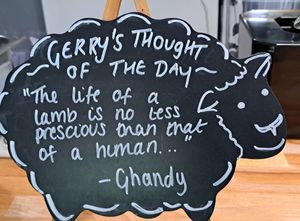 GERRY'S THOUGHT
OF THE DAY
"The life of a
lamb is no less
prescious than that
of a human..."
- Ghandy